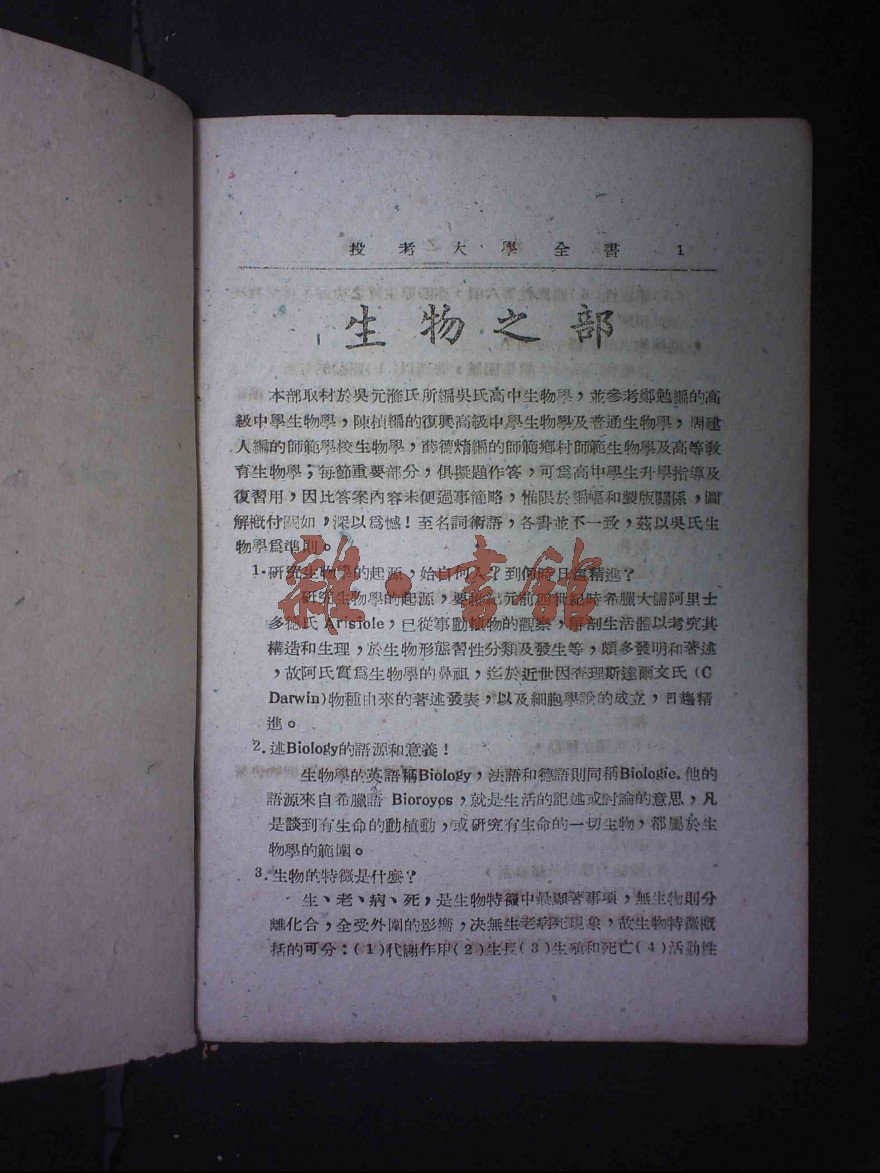 投考大學全書 1
生物之部
本部取材於吳元滌氏所編吳氏高中生物學，並參考鄭勉編的高
級中學生物學，陳楨編的復興高級中學生物學及普通生物學，周建
人編的師範學校生物學，薛德焴編的師範鄉村師範生物學及高等教
育生物學；每節重要部分，俱擬題作答，可爲高中學生升學指導及
復習用，因比答案內容未便過事簡略，惟限於編幅和製版關係，圖
解槪付闕如，深以爲憾！至名詞術語，各書並不一致，茲以吳氏生
物學爲準則。
1.研究生物學的起源，始自何人？到何時日趨精進？
研究生物學的起源，要推紀元前四世紀時希臘大儒阿里士
多德氏 Arisiole，已從事動植物的觀察，解剖生活體以考究其
構造和生理，於生物形態習性分類及發生等，頗多發明和著述
，故阿氏實爲生物學的鼻祖，迄於近世因查理斯達爾文氏（C
Darwin)物種由來的著述發表，以及細胞學說的成立，日趨精
進。
2.述Biology的語源和意義！
生物學的英語稱Biology，法語和德語則同稱Biologie.他的
語源來自希臘語 Bioroyos，就是生活的記述或討論的意思，凡
是談到有生命的動植動，或研究有生命的一切生物，都屬於生
物學的範圍。
3.生物的特徵是什麼？
生、老、病、死，是生物特徵中最顯著事項，無生物則分
離化合，全受外圍的影響，决無生老病死現象，故生物特徵槪
括的可分：(1)代謝作用(2)生長(3)生殖和死亡(4)活動性
雜·書館